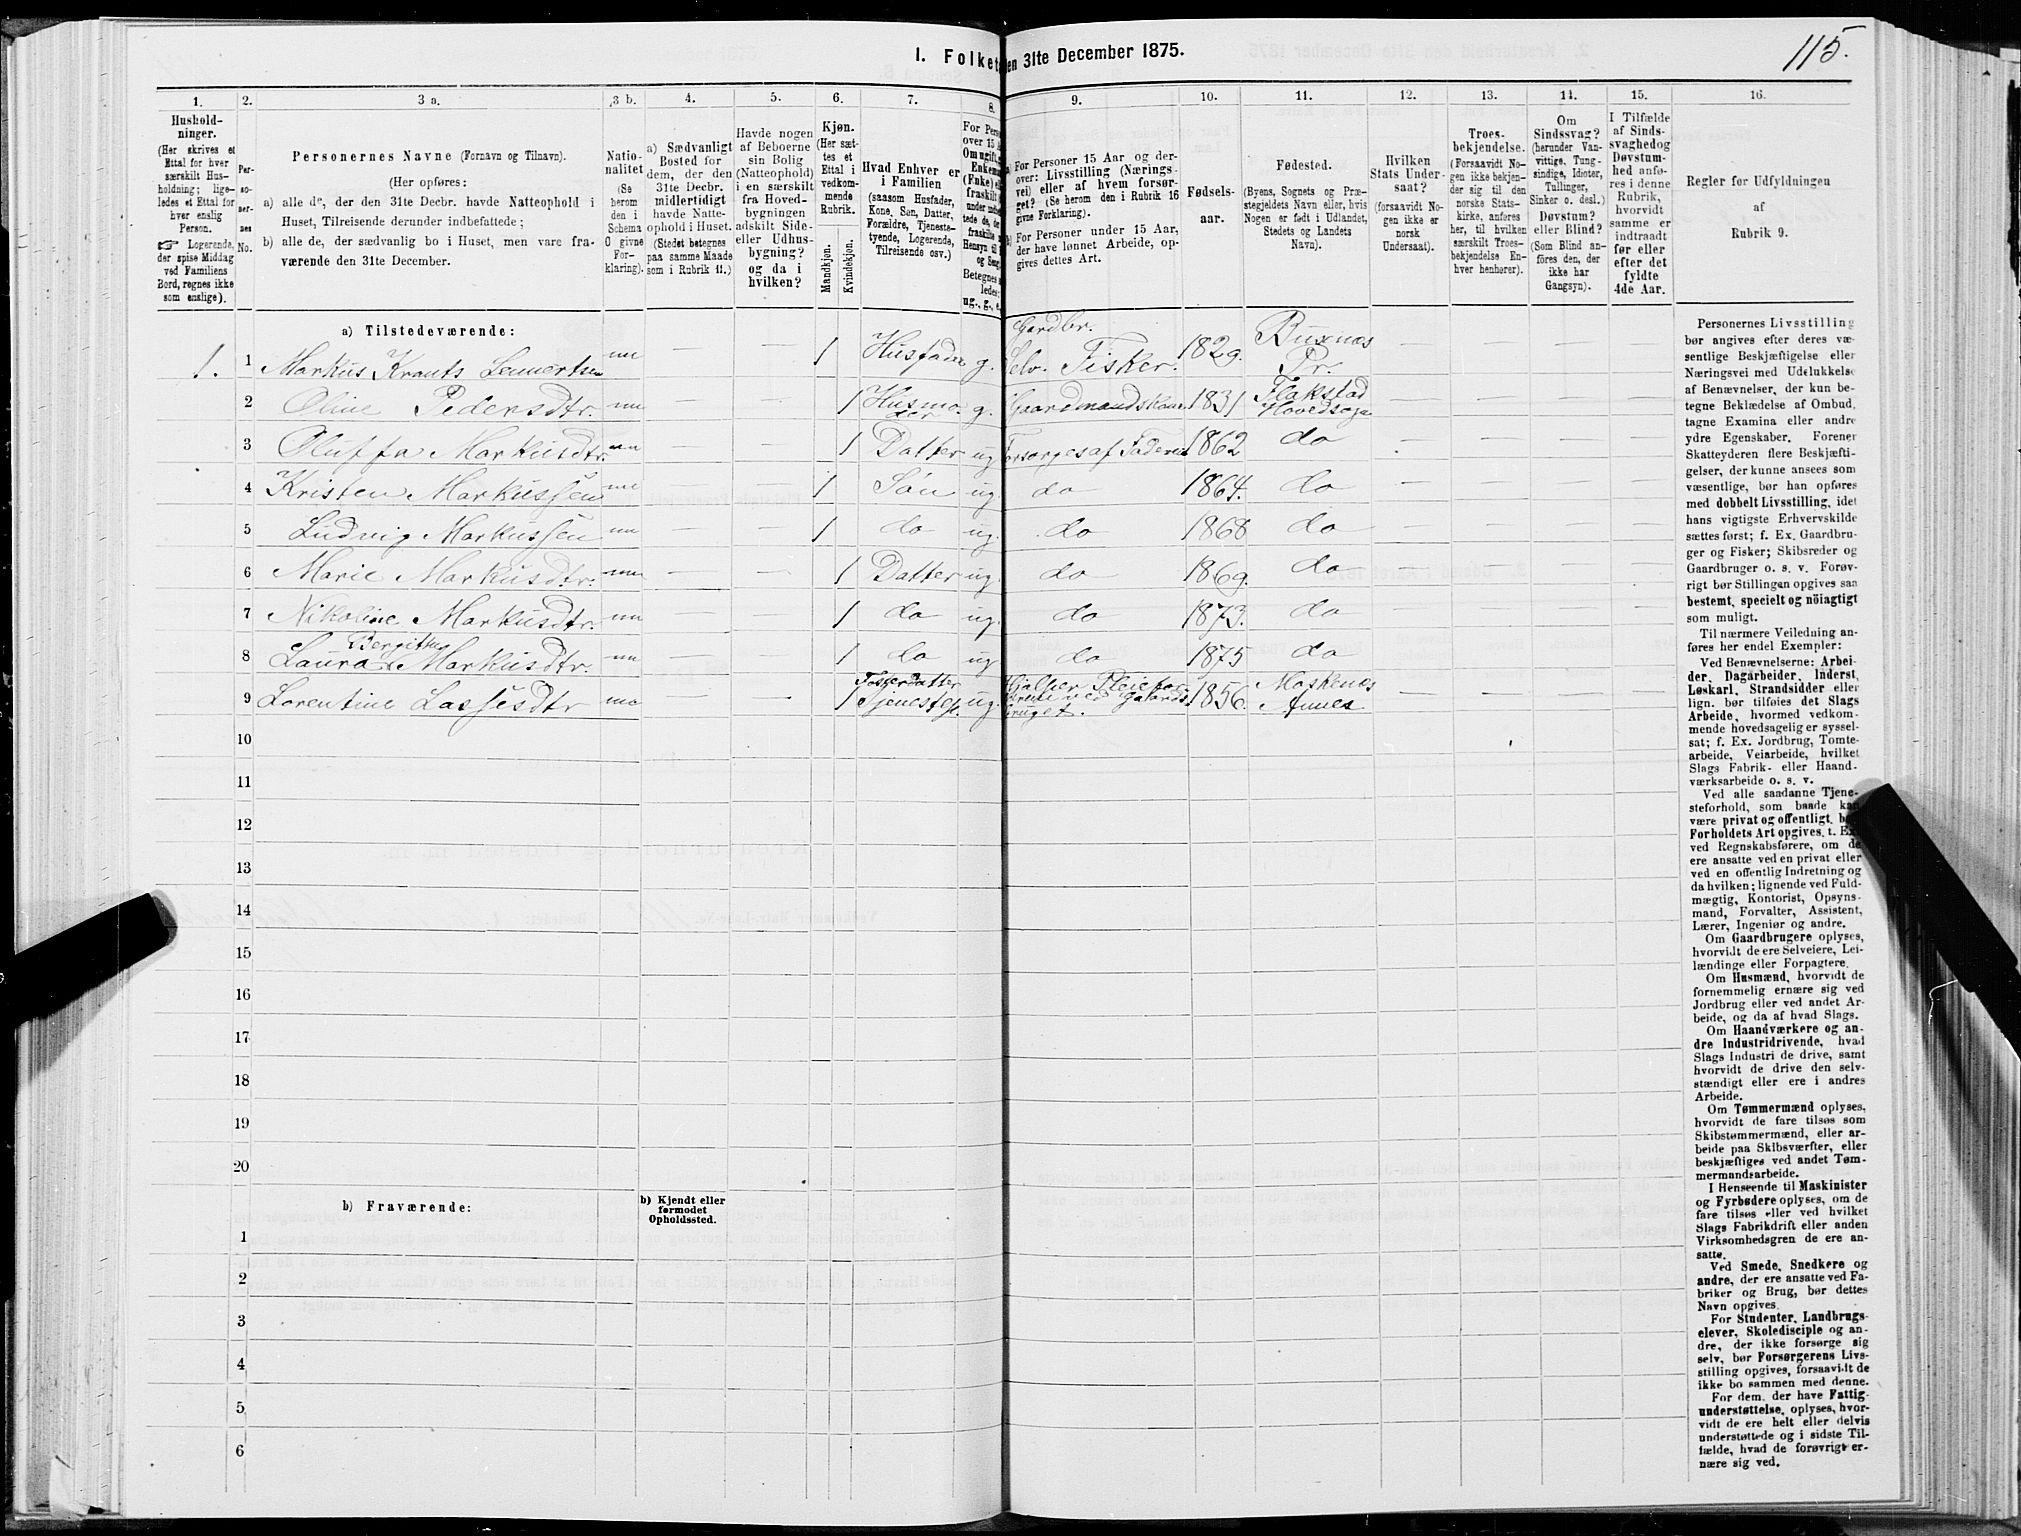 115.
I. Folket
en 31te December 1875.
1. 2. 3 a. 3 b. 4. 5. 6. 7. 8. 9. 10. 11. 12. 13. 14. 15. 16.
Hushold-
ninger.
(Her skrives et
Ettal for hver
særskilt Hus-
holdning; lige-
ledes et Ettal for
hver enslig
Person.
☞ Logerende,
der spise Middag
ved Familiens
Bord, regnes ikke
som enslige).
Per-
so-
ner-
nes
No.
Personernes Navne (Fornavn og Tilnavn).
(Her opføres:
a) alle de, der den 31te Decbr. havde Natteophold i
Huset, Tilreisende derunder indbefattede;
b) alle de, der sædvanlig bo i Huset, men vare fra-
værende den 31te December.
Natio-
nalitet
(Se
herom
den i
Schema
O givne
For-
klaring).
a) Sædvanligt
Bosted for
dem, der den
31te Decbr.
midlertidigt
havde Natte-
ophold i Huset.
(Stedet betegnes
paa samme Maade
som i Rubrik 11.)
Havde nogen
af Beboerne
sin Bolig
(Natteophold)
i en særskilt
fra Hoved-
bygningen
adskilt Side-
eller Udhus-
bygning?
og da i
hvilken?
Kjøn.
(Her sæt-
tes et
Ettal i
vedkom-
mende
Rubrik.
Mandkjøn.
Kvindekjøn.
Hvad Enhver er
i Familien
(saasom Husfader,
Kone, Søn, Datter,
Forældre, Tjeneste-
tyende, Logerende,
Tilreisende osv.)
For Pers
over 15 A
Om ugift,
Enkem
(Enke) el
fraskilt
under indbe
tede de,
fraskilte
Hensyn til
og Seng
Betegnes
ledes:
ug., g., e.
a) For Personer 15 Aar og der-
over: Livsstilling (Nærings-
vei) eller af hvem forsør-
get? (Se herom den i Rubrik 16
givne Forklaring).
b) For Personer under 15 Aar,
der have lønnet Arbeide, op-
gives dettes Art.
Fødsels-
aar.
Fødested.
(Byens, Sognets og Præ-
stegjeldets Navn eller, hvis
Nogen er født i Udlandet,
Stedets og Landets
Navn).
Hvilken
Stats Under-
saat?
(forsaavidt No-
gen ikke er
norsk
Undersaat).
Troes-
bekjendelse.
(Forsaavidt No-
gen ikke bekjen-
der sig til den
norske Stats-
kirke, anføres
her, til hvilken
særskilt Troes-
bekjendelse En-
hver henhører).
Om
Sindssvag?
(herunder Van-
vittige, Tung-
sindige, Idioter,
Tullinger,
Sinker o. desl.)
Døvstum?
eller Blind?
(Som Blind an-
føres den, der
ikke har
Gangsyn).
I Tilfælde
af Sinds-
svaghedog
Døvstum-
hed anfø-
res i denne
Rubrik,
hvorvidt
samme er
indtraadt
før eller
efter det
fyldte
4de Aar.
Regler før Udfyldningen
af
Rubrik 9.
a) Tilstedeværende:
1. 1 Markus Krants Lennertsen nn — — 1 Husfader g. Gardbr. Selv. Fisker. 1829. Buxnæs Pr.
2 Oline Pedersdtr. nn — — 1 Husmoder g. Gaardmandskone 1831 Flakstad Hovedsogn — — — —
3 Oluffa Markusdtr. nn — — 1 Datter ug Forsørges af Faderen 1862 do — — — —
4 Kristen Markussen nn — — 1 Søn ug. do 1864. do — — — —
5 Ludvig Markussen nn — — 1 do ug. do 1868 do — — — —
6 Marie Markusdtr. nn — — 1 Datter ug. do 1869. do — — — —
7 Nikoline Markusdtr. nn — — 1 do ug. do 1873. do — — — —
8 Laura Bergitha Markusdtr. nn — — 1 do ug do 1875 do — — — —
9 Lorentine Lassesdtr nn — — 1 Fosterdatter Tjenestepi. ug. Hjælper Pleiefor ved Gaards bruget. 1856. Moskenæs — — — —
10
11
12
13
14
15
16
17
18
19
20
b) Fraværende:
b) Kjendt eller
formodet
Opholdssted.
1
2
3
4
5
6
Personernes Livsstilling
bør angives efter deres væ-
sentlige Beskjæftigelse eller
Næringsvei med Udelukkelse
af Benævnelser, der kun be-
tegne Beklædelse af Ombud,
tagne Examina eller andre
ydre Egenskaber. Forener
Skatteyderen flere Beskjæfti-
gelser, der kunne ansees som
væsentlige, bør han opføres
med dobbelt Livsstilling, idet
hans vigtigste Erhvervskilde
sættes først; f. Ex. Gaardbru-
ger og Fisker; Skibsreder og
Gaardbruger o. s. v. Forøv-
rigt bør Stillingen opgives saa
bestemt, specielt og nöiagtigt
som muligt.
Til nærmere Veiledning an-
føres her endel Exempler:
Ved Benævnelserne: Arbei-
der, Dagarbeider, Inderst,
Løskarl, Strandsidder eller
lign. bør tilføies det Slags
Arbeide, hvormed vedkom-
mende hovedsagelig er syssel-
sat; f. Ex. Jordbrug, Tomte-
arbeide, Veiarbeide, hvilket
Slags Fabrik- eller Haand-
værksarbeide o. s. v.
Ved alle saadanne Tjene-
steforhold, som baade kan
være privat og offentligt, bør
Forholdets Art opgives, t. Ex.
ved Regnskabsførere, om de
ere ansatte ved en privat eller
ved en offentlig Indretning og
da hvilken; lignende ved Fuld-
mægtig, Kontorist, Opsyns-
mand, Forvalter, Assistent,
Lærer, Ingeniør og andre.
Om Gaardbrugere oplyses,
hvorvidt de ere Selveiere, Lei-
lændinge eller Forpagtere.
Om Husmænd, hvorvidt de
fornemmelig ernære sig ved
Jordbrug eller ved andet Ar-
beide, og da af hvad Slags.
Om Haandværkere og an-
dre Industridrivende, hvad
Slags Industri de drive, samt
hvorvidt de drive den selv-
stændigt eller ere i andres
Arbeide.
Om Tømmermænd oplyses,
hvorvidt de fare tilsøs som
Skibstømmermænd, eller ar-
beide paa Skibsværfter, eller
beskjæftiges ved andet Tøm-
mermandsarbeide.
I Henseende til Maskinister
og Fyrbødere oplyses, om de
fare tilsøs eller ved hvilket
Slags Fabrikdrift eller anden
Virksomhedsgren de ere an-
satte.
Ved Smede, Snedkere og
andre, der ere ansatte ved Fa-
briker og Brug, bør dettes
Navn opgives.
For Studenter, Landbrugs-
elever, Skoledisciple og an-
dre, der ikke forsørge sig
selv, bør Forsørgerens Livs-
stilling opgives, forsaavidt de
ikke bo sammen med denne.
For dem, der have Fattig-
understøttelse, oplyses, hvor-
vidt de ere helt eller delvis
understøttede og i sidste Til-
fælde, hvad de forøvrigt er-
nære sig ved.